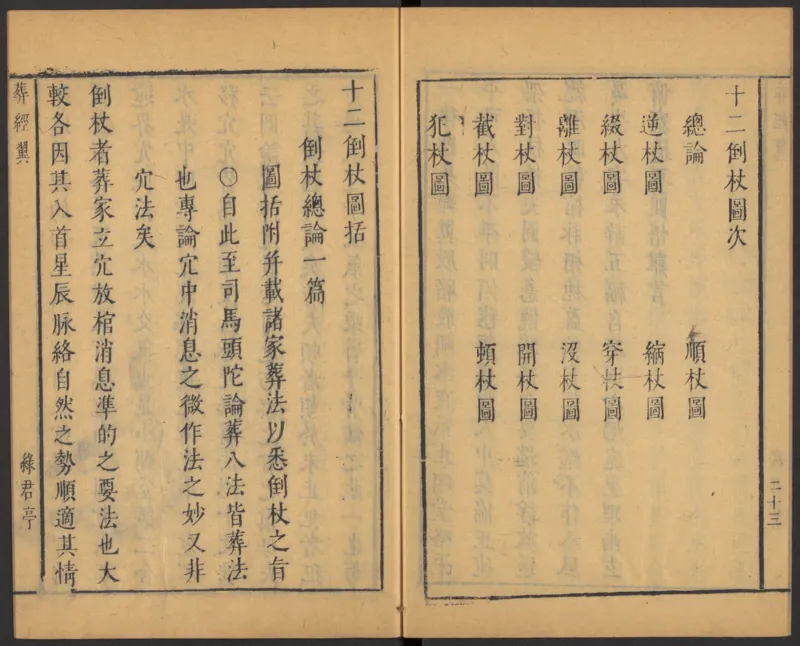 十二倒杖圖次
總論 順杖圖
逆杖圖 縮杖圖
綴杖圖 穿杖圖
離杖圖 沒杖圖
對杖圖 開杖圖
截杖圖 頓杖圖
犯杖圖
二十三
十二倒杖圖括
倒杖總論一篇
圖括附并載諸家葬法以悉倒杖之旨
〇自此至司馬頭陀論葬八法皆葬法
也專論穴中消息之微作法之妙又非
穴法矣
倒杖者葬家立穴放棺消息準的之要法也大
較各因其入首星辰脉絡自然之勢順適其情
葬經翼
綠君亭